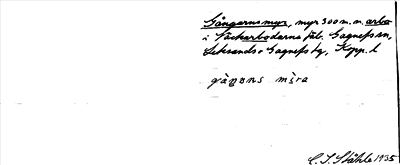 Gångarnsmyr, myr 300 m. n. arbo
i Näckarbodarna fäb. Gagnefs sn,
Leksands o Gagnefs tg, Kopp. l
gàŋɐns mìra
C. I. Ståhle 1935